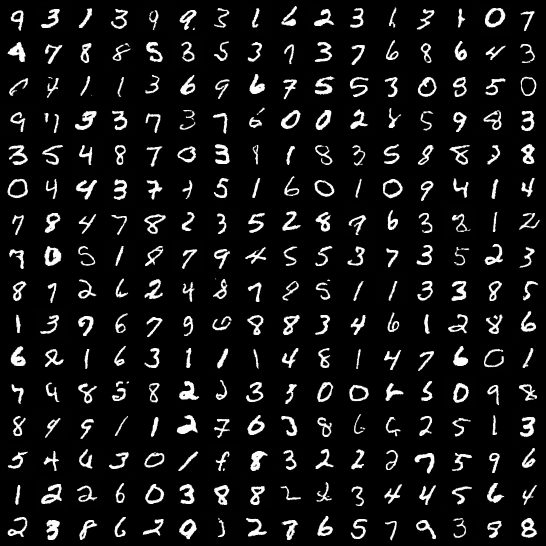 9 3 1 3 9 9 3 1 6 2 3 1 3 1 0 7
4 7 8 8 5 3 5 3 7 3 7 6 8 6 4 3
0 4 1 1 3 6 9 6 7 5 5 3 0 8 5 0
9 7 3 3 7 3 7 6 0 0 2 8 5 9 8 3
3 5 4 8 7 0 3 1 8 3 5 8 8 3 8
0 4 4 3 7 7 5 1 6 0 1 0 9 4 1 4
7 8 4 7 8 2 3 5 2 8 9 6 3 8 1 2
7 0 5 1 8 7 9 4 5 5 3 7 3 5 2 3
8 7 2 6 2 4 8 7 8 5 1 1 3 3 8 5
1 3 9 6 7 9 6 8 8 3 4 6 1 2 8 6
6 8 1 6 3 1 1 1 4 8 1 4 7 6 0 1
7 9 8 5 8 2 2 3 3 0 0 8 5 0 9 8
8 9 9 1 1 2 7 0 3 8 6 6 2 5 1 3
5 4 6 3 0 1 8 8 3 2 2 2 7 5 9 6
1 2 2 6 0 3 8 8 2 2 3 4 4 5 6 4
2 3 8 6 2 0 2 7 8 6 5 7 9 3 9 8